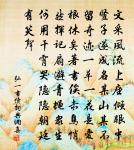 文采風流上座傾眼中
豎子遂成名某山某水
留奇迹一草一花是愛
根休矣著書俟赤鳥悄
然揮扇避青蠅眾生
何用干霄哭隱隱朝廷
有笑聲
弘一書憤